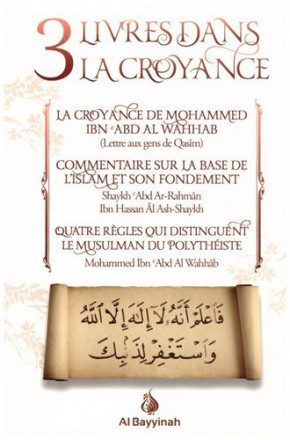 3 LIVRES DANS
LA CROYANCE
LA CROYANCE DE MOHAMMED
IBN ʿABD AL WAHHAB
(Lettre aux gens de Qasîm)
COMMENTAIRE SUR LA BASE DE
L'ISLAM ET SON FONDEMENT
Shaykh ʿAbd Ar-Rahmân
Ibn Hassan Âl Ash-Shaykh
QUATRE RÈGLES QUI DISTINGUENT
LE MUSULMAN DU POLYTHÉISTE
Mohammed Ibn ʿAbd Al Wahhâb
فَاعْلَمْ أَنَّهُ لَا إِلَٰهَ إِلَّا اللَّهُ
وَاسْتَغْفِرْ لِذَنبِكَ
Al Bayyinah